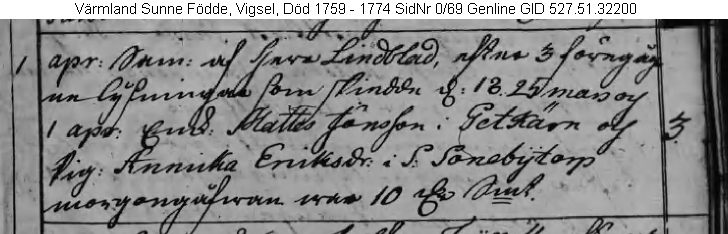 Värmland Sunne Födde, Vigsel, Död 1759 - 1774 SidNr 0/69 Genline GID 527.51.32200
1 apr: Sam: af Herr Lindblad, efter 3 föregång
ne lysningar som skedde d: 18. 25 mars och
1 apr: Matts Jönsson i Getkärn och 3
Pig: Annika Eriksdr: i S: Sonebytorp
morgongåfwan war 10 Smt.